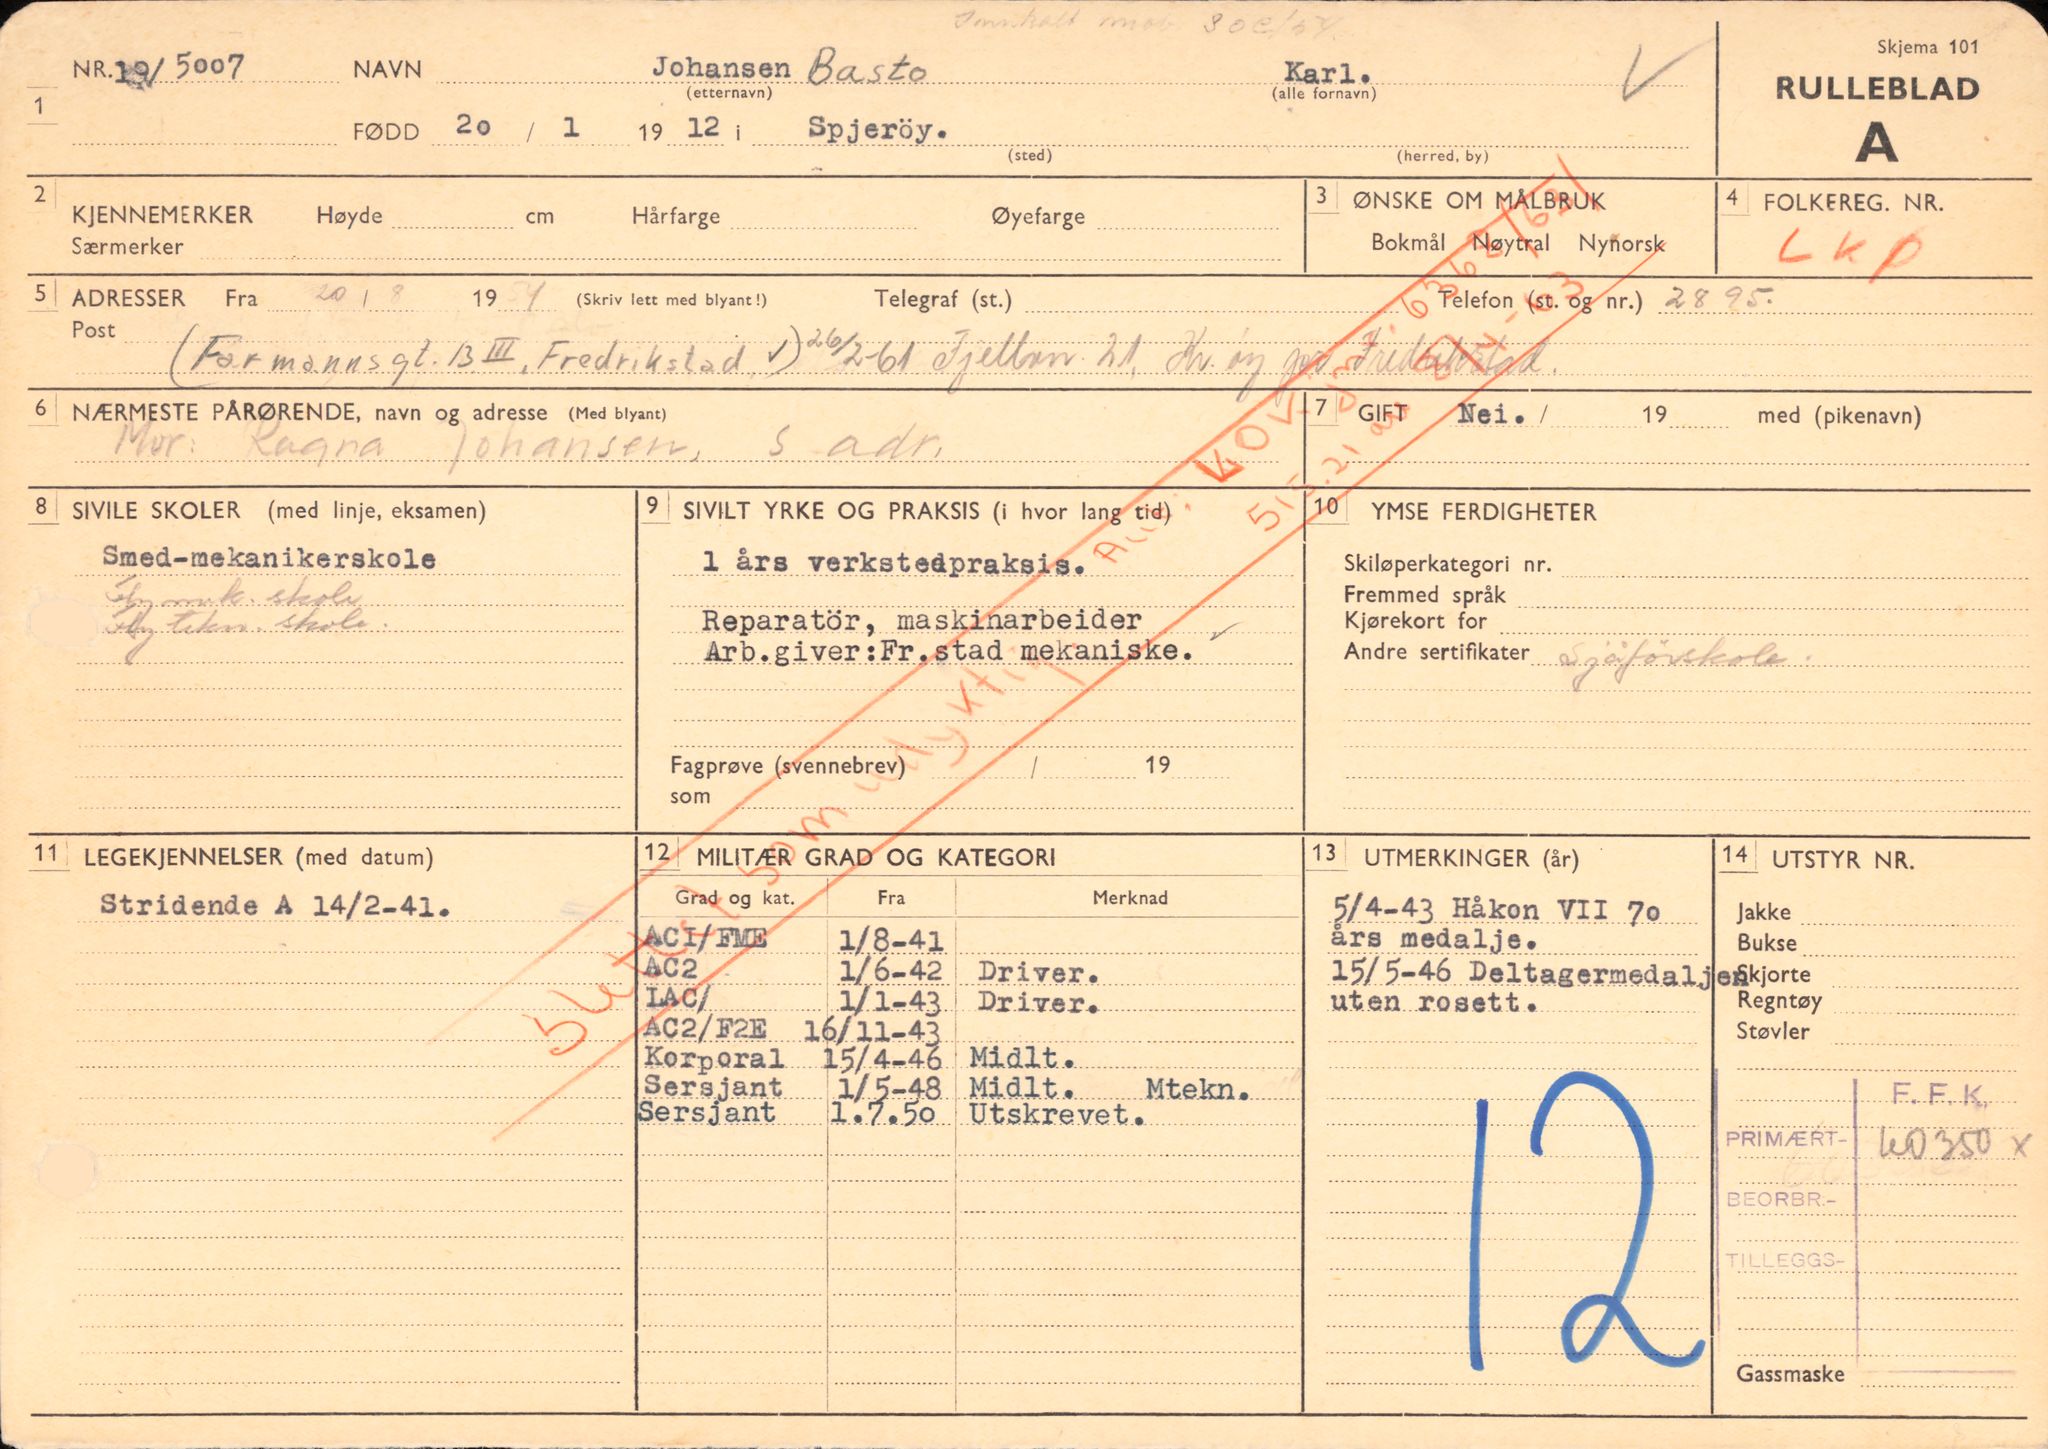 Skjema 101
RULLEBLAD
A
1
NR. 19/5007 NAVN Johansen Basto Karl. V
(etternavn) (alle fornavn)
FØDD 20 / 1 19 12 i Spjeröy.
(sted) (herred, by)
2 KJENNEMERKER Høyde cm Hårfarge Øyefarge
Særmerker
3 ØNSKE OM MÅLBRUK
Bokmål Nøytral Nynorsk
4 FOLKEREG. NR.
LKP
5 ADRESSER Fra 20 / 8 19 54 (Skriv lett med blyant!) Telegraf (st.) Telefon (st. og nr.) 2895.
Post
(Farmannsgt. 13 III, Fredrikstad ✓) 26/2-61 21, Kr.øy Fredrikstad.
6 NÆRMESTE PÅRØRENDE, navn og adresse (Med blyant)
Mor: Ragna Johansen, s adr.
7 GIFT Nei. / 19 med (pikenavn)
8 SIVILE SKOLER (med linje, eksamen)
Smed-mekanikerskole
Flymek. skole
Fly tekn. skole.
9 SIVILT YRKE OG PRAKSIS (i hvor lang tid)
1 års verkstedpraksis.
Reparatör, maskinarbeider
Arb.giver:Fr.stad mekaniske. ✓
Fagprøve (svennebrev) / 19
som
10 YMSE FERDIGHETER
Skiløperkategori nr.
Fremmed språk
Kjørekort for
Andre sertifikater Sjåførskole.
Slettet som udyktig.
11 LEGEKJENNELSER (med datum)
Stridende A 14/2-41.
12 MILITÆR GRAD OG KATEGORI
Grad og kat. Fra Merknad
AC1/FME 1/8-41
AC2 1/6-42 Driver.
LAC/ 1/1-43 Driver.
AC2/F2E 16/11-43
Korporal 15/4-46 Midlt.
Sersjant 1/5-48 Midlt. Mtekn.
Sersjant 1.7.50 Utskrevet.
13 UTMERKINGER (år)
5/4-43 Håkon VII 70
års medalje.
15/5-46 Deltagermedaljen
uten rosett.
12
14 UTSTYR NR.
Jakke
Bukse
Skjorte
Regntøy
Støvler
F. F. K.
PRIMÆRT- KO350 X
BEORBR.-
TILLEGGS-
Gassmaske